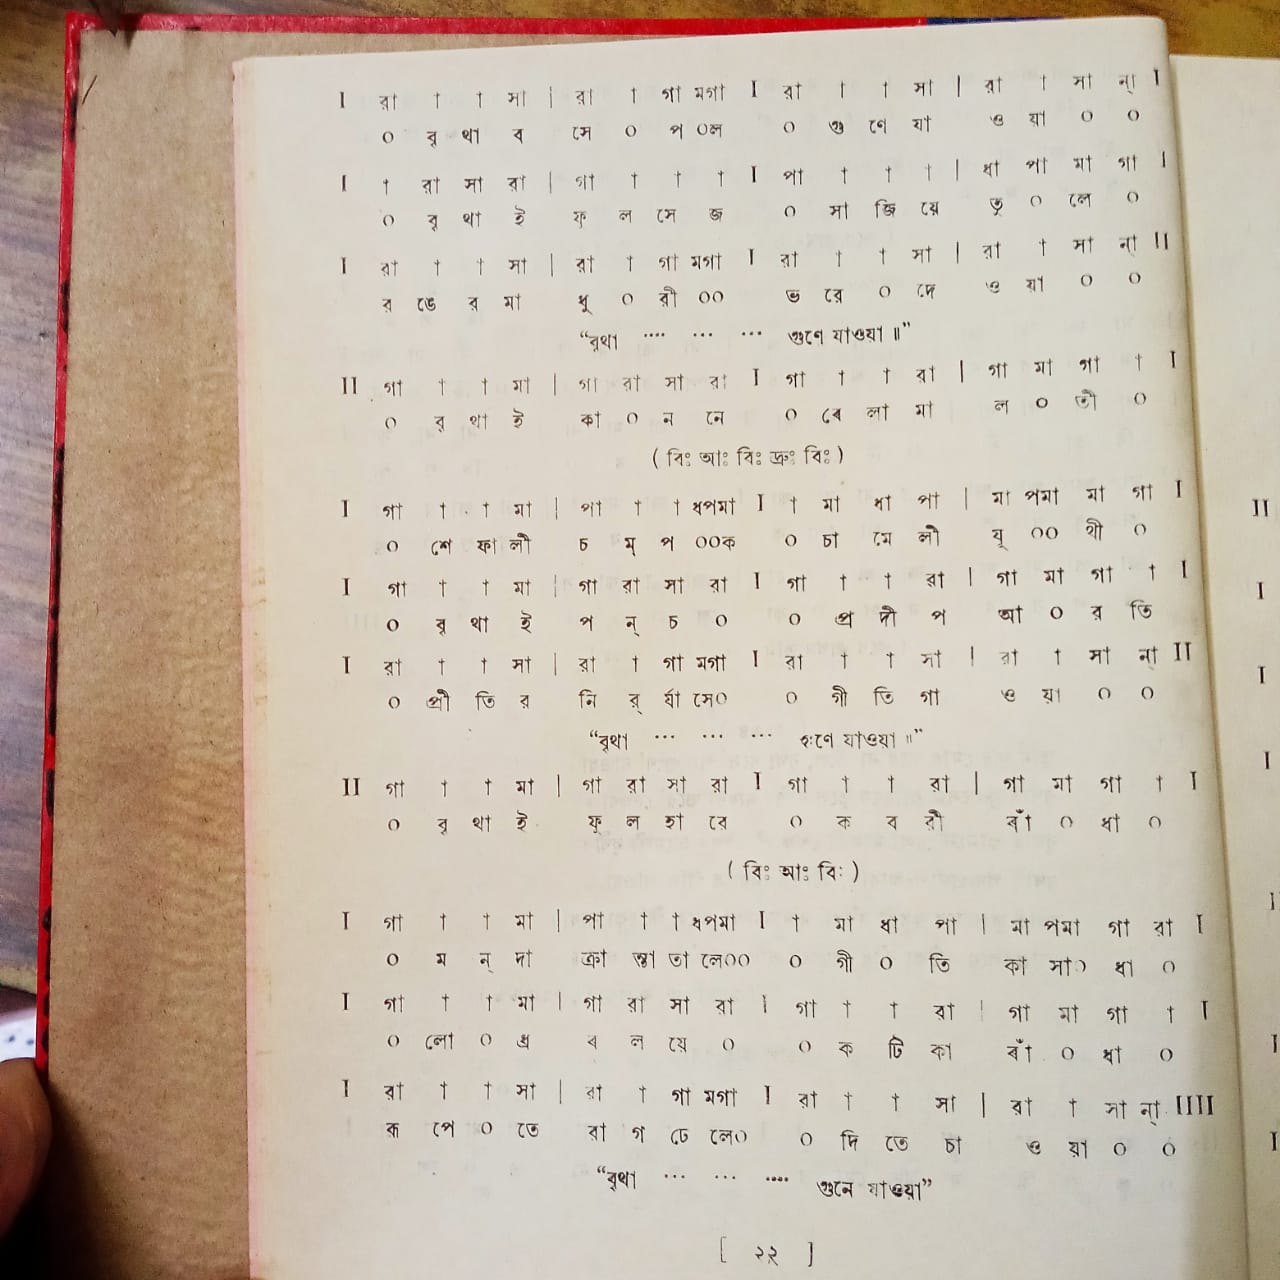 I রা † † সা | রা † গা মগা I রা † † সা | রা † সা ন্া I
০ বৃ থা ব সে ০ প ০ল ০ গু ণে যা ও য়া ০ ০
I † রা সা রা | গা † † † I পা † † † | ধা পা মা গা I
০ বৃ থা ই ফু ল সে জ ০ সা জি য়ে তু ০ লে ০
I রা † † সা | রা † গা মগা I রা † † সা | রা † সা ন্া II
ব ঙে র মা ধু ০ রী ০০ ভ রে ০ দে ও য়া ০ ০
“বৃথা ···· ··· ··· গুণে যাওয়া॥”
II গা † † মা | গা রা সা রা I গা † † রা | গা মা গা † I
০ বৃ থা ই কা ০ ন নে ০ বে লা মা ল ০ তী ০
( বিঃ আঃ বিঃ দ্রুঃ বিঃ )
I গা † † মা | পা † † ধপমা I † মা ধা পা | মা পমা মা গা I
০ শে ফা লী চ ম্ প ০০ক ০ চা মে লী যূ ০০ থী ০
I গা † † মা | গা রা সা রা I গা † † রা | গা মা গা † I
০ বৃ থা ই প ন্ চ ০ ০ প্র দী প আ ০ র তি
I রা † † সা | রা † গা মগা I রা † † সা | রা † সা ন্া II
০ প্রী তি র নি র্ যা সে০ ০ গী তি গা ও য়া ০ ০
“বৃথা ··· ··· ··· গুণে যাওয়া॥”
II গা † † মা | গা রা সা রা I গা † † রা | গা মা গা † I
০ বৃ থা ই ফু ল হা রে ০ ক ব রী বাঁ ০ ধা ০
( বিঃ আঃ বিঃ )
I গা † † মা | পা † † ধপমা I † মা ধা পা | মা পমা গা রা I
০ ম ন্ দা ক্রা ন্তা তা লে০০ ০ গী ০ তি কা সা০ ধা ০
I গা † † মা | গা রা সা রা | গা † † রা | গা মা গা † I
০ লো ০ ধ্র ব ল য়ে ০ ০ ক টি কা বাঁ ০ ধা ০
I রা † † সা | রা † গা মগা I রা † † সা | রা † সা ন্া IIII
রূ পে ০ তে রা গ ঢে লে০ ০ দি তে চা ও য়া ০ ০
“বৃথা ··· ··· ···· গুনে যাওয়া”
[ ২২ ]